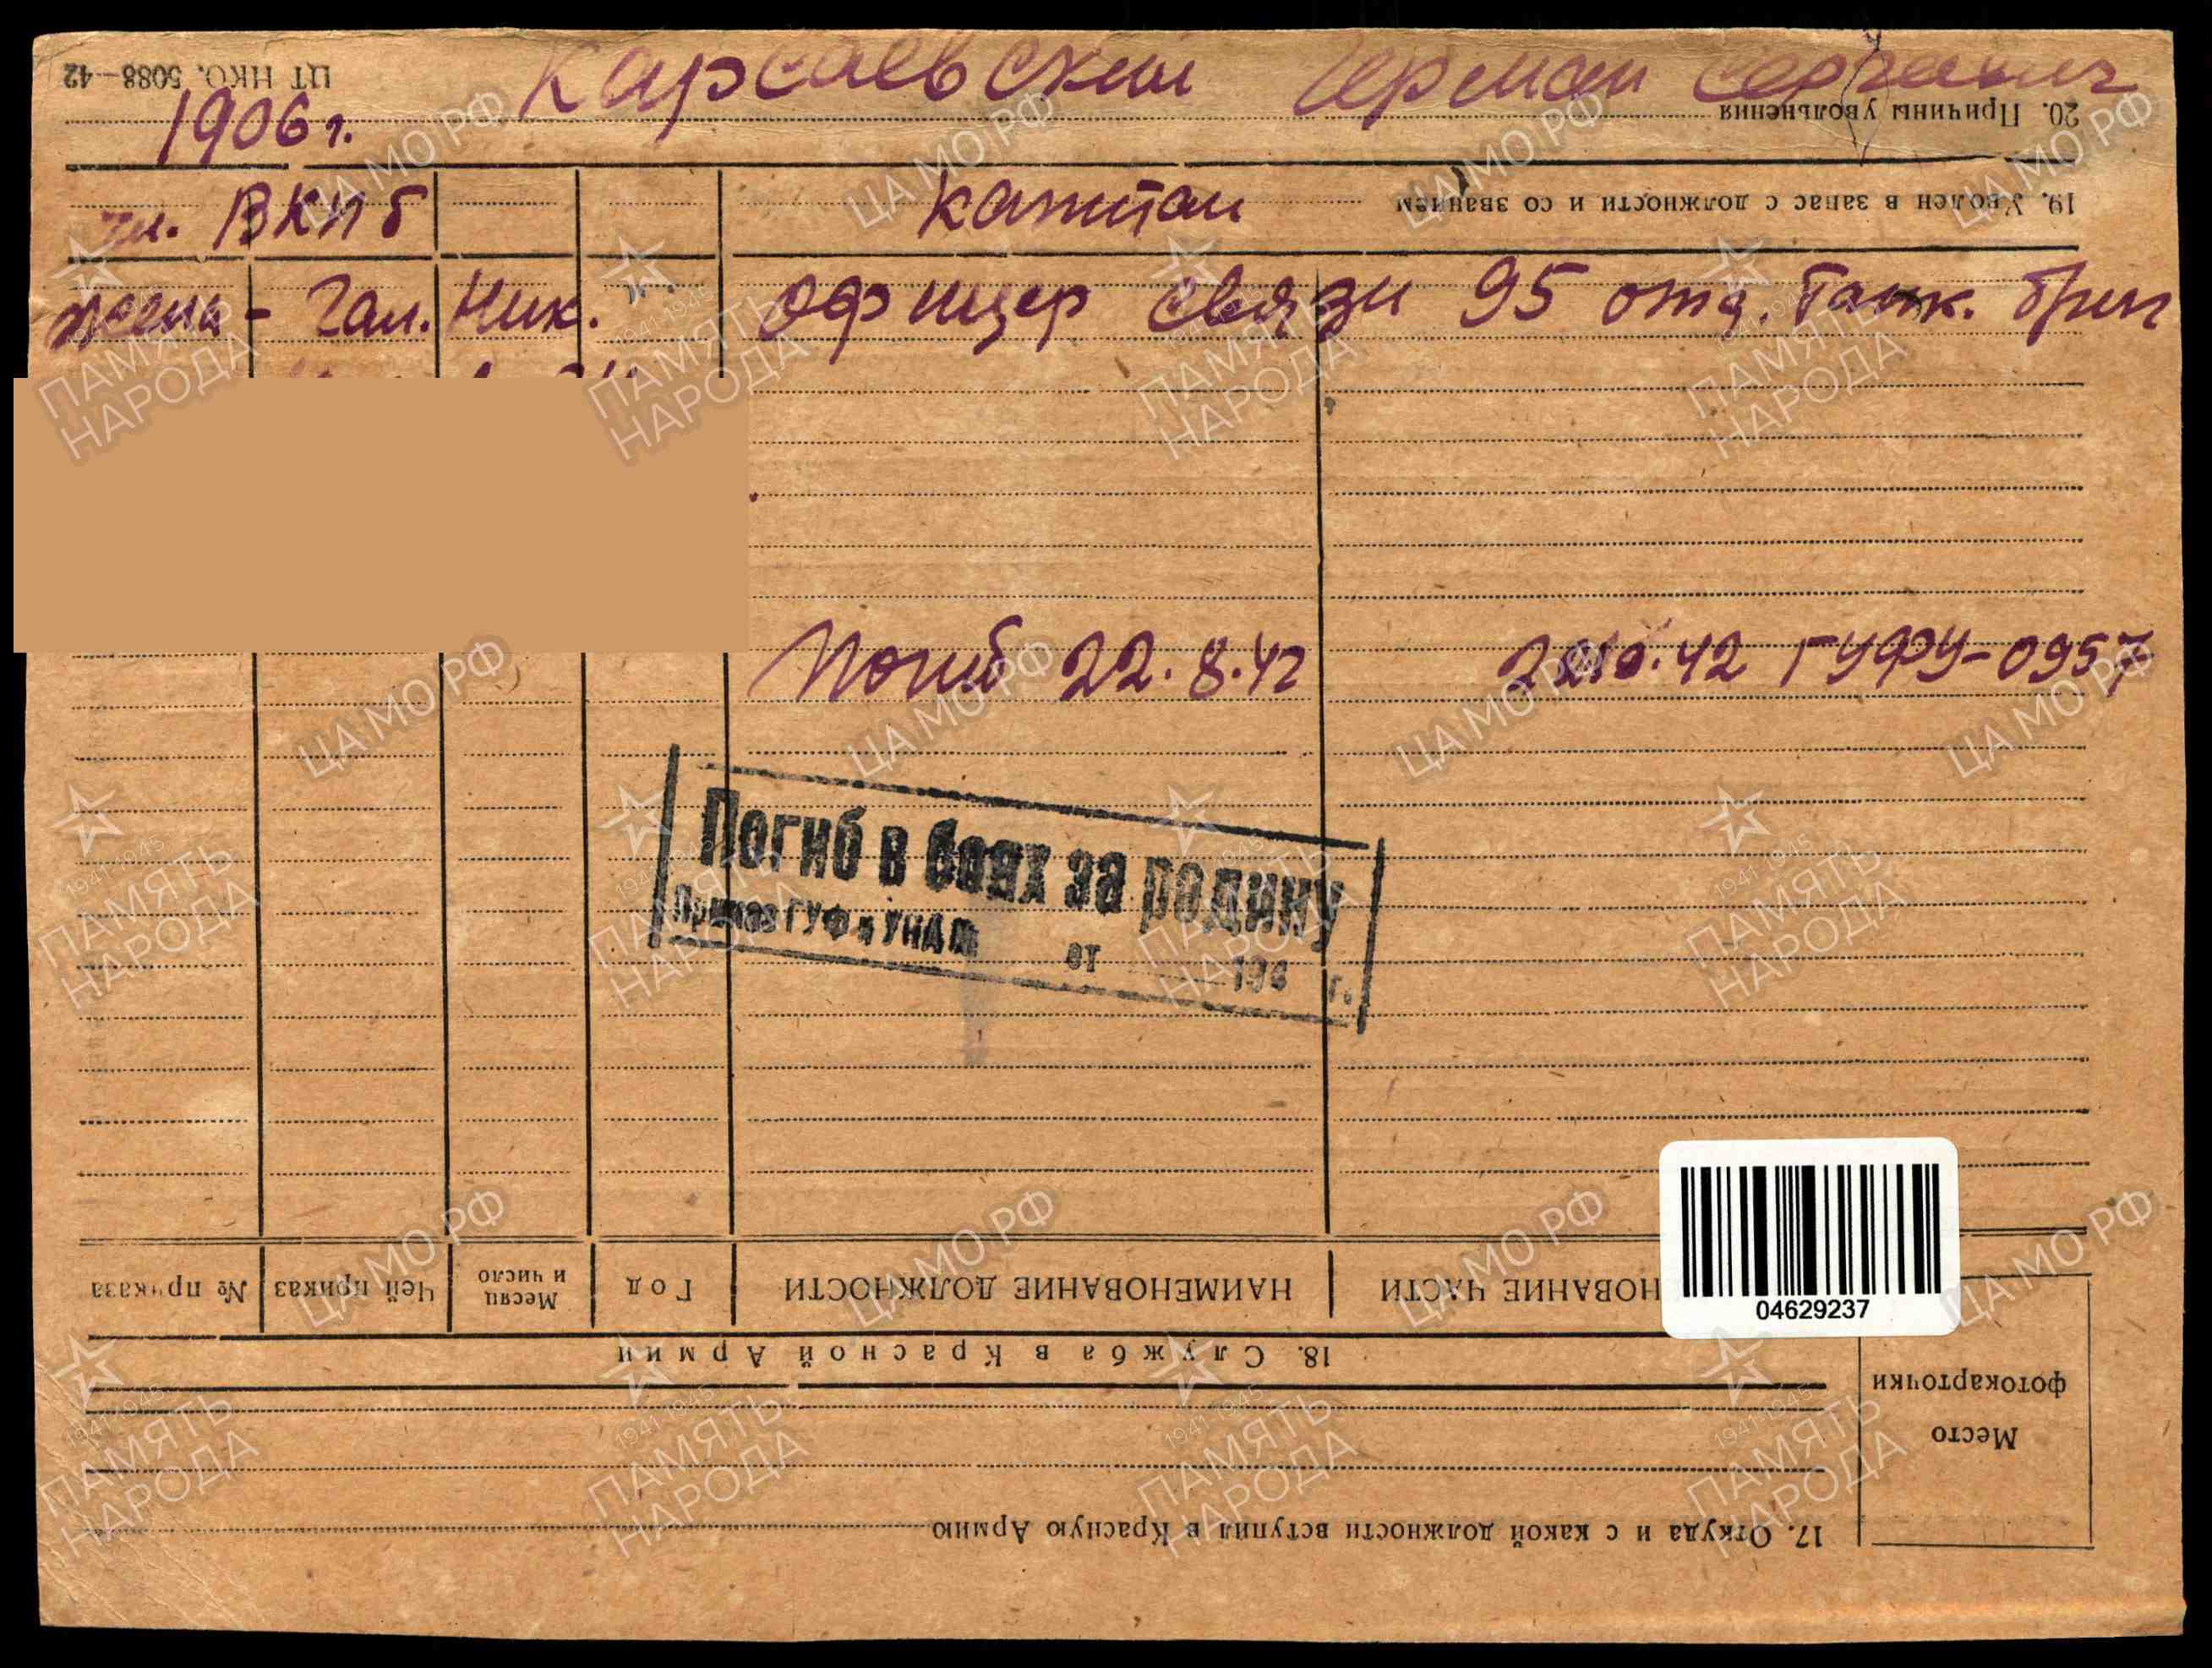 Карсаевский Герман Сергеевич
1906 г.
чл. ВКПб
капитан
жена - Гал. Ник.
офицер связи 95 отд. танк. бриг
Погиб 22.8.42
42 ГУФУ-0957
Погиб в боях за родину
Приказ ГУФ и УНД №
от 194 г.
04629237
ЦТ НКО. 5088-42
20. Причины увольнения
19. Уволен в запас с должности и со званием
НОВАНИЕ ЧАСТИ
НАИМЕНОВАНИЕ ДОЛЖНОСТИ
Год
Месяц и число
Чей приказ
№ приказа
18. Служба в Красной Армии
Место фотокарточки
17. Откуда и с какой должности вступил в Красную Армию
ЦА МО РФ
1941-1945
ПАМЯТЬ НАРОДА